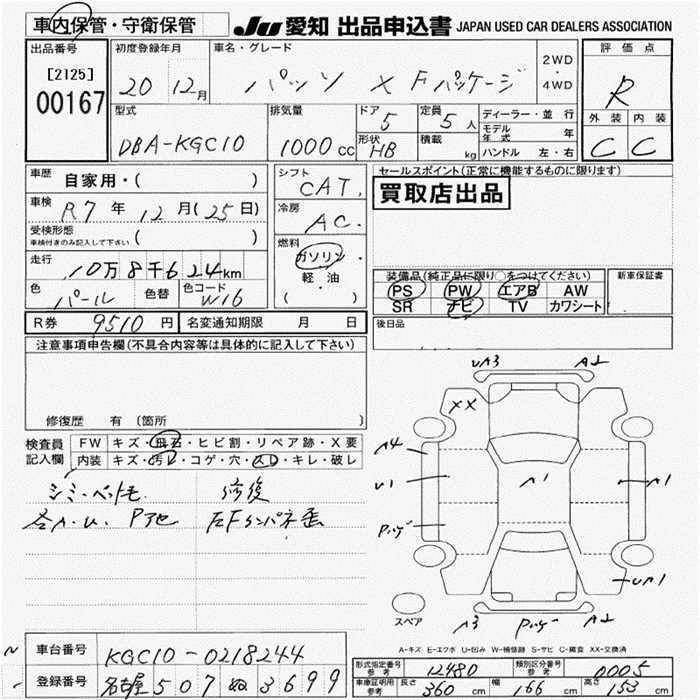 車内保管・守衛保管
JU 愛知 出品申込書 JAPAN USED CAR DEALERS ASSOCIATION
出品番号
[2125]
00167
初度登録年月
20 12月
車名・グレード
パッソ X Fパッケージ
2WD
・
4WD
評価点
R
外装 内装
C C
型式
DBA-KGC10
排気量
1000cc
ドア
5
形状
HB
定員
5人
積載
kg
ディーラー・並行
モデル年式 年
ハンドル 左・右
車歴 自家用・( )
車検 R7年12月(25日)
受検形態
車検付きのみ記入して下さい ( )
走行 10万8千624km
色 パール 色替 色コード W16
シフト
CAT.
冷房
AC.
燃料
ガソリン・
軽油
( )
セールスポイント(正常に機能するものに限ります)
買取店出品
装備品(純正品に限り○をつけてください)
PS PW エアB AW
SR ナビ TV カワシート
新車保証書
後日品
R券 9510円 名変通知期限 月 日
注意事項申告欄(不具合内容等は具体的に記入して下さい)
修復歴 有 〔箇所 〕
検査員
記入欄
FW キズ・飛石・ヒビ割・リペア跡・X要
内装 キズ・汚レ・コゲ・穴・スレ・キレ・破レ
シミ・ペット毛 修復
各A.U. Pア他 左Fインパネ歪
UA3 A2
XX
A4
U1 A1 A1
Pハゲ
UA1
スペア
A3 Pハゲ A2
A-キズ E-エクボ U-凹み W-補修跡 S-サビ C-腐食 XX-交換済
車台番号 KGC10-0218244
登録番号 名古屋507ぬ3699
形式指定番号
参考 12480
類別区分番号
参考 0005
車庫証明用
参考
長さ 360cm 幅 166cm 高さ 153cm